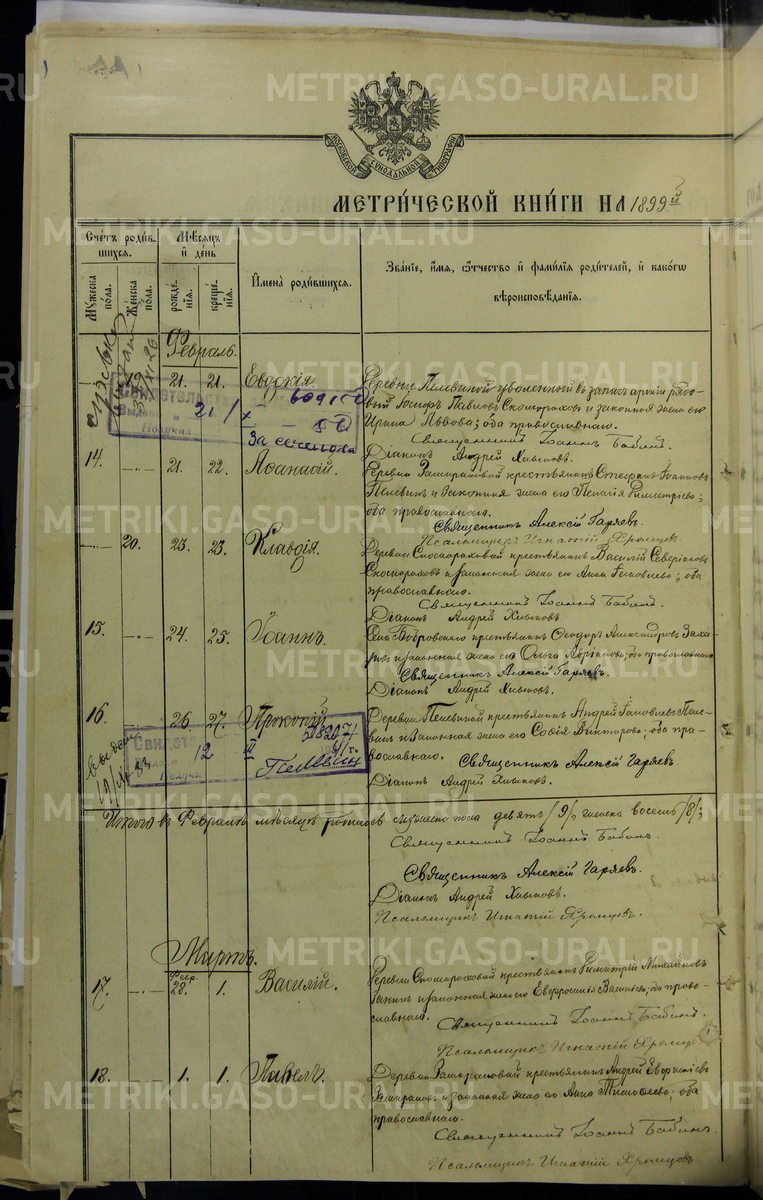 METRIKI.GASO-URAL.RU
МОСКОВСКОЙ СѴНОДАЛЬНОЙ ТИПОГРАФІИ
МЕТРИ́ЧЕСКОЙ КНИ́ГИ НА 1899й
Сче́тъ роди́вшихся.
Мѣ́сяцъ и҆ де́нь
Мꙋ́жеска по́ла.
Же́нска по́ла.
рожде́нїѧ.
креще́нїѧ.
И҆мена̀ роди́вшихсѧ.
Зва́нїе, и҆́мѧ, ѻ҆́тчество и҆ фами́лїѧ роди́телей, и҆ како́гѡ вѣроисповѣ́данїѧ.
Февраль.
21. 21. Евдокія.
Деревни Пелевиной уволенный въ запасъ арміи рядо-
вый Іосифъ Павловъ Скоморохов и законная жена его
Ирина Львова; оба православнаго.
Священникъ Іоаннъ Бабинъ.
Діаконъ Андрей Хлыновъ.
14. 21. 22. Аѳанасій.
крестьянинъ Стефанъ Іоанновъ
Пелевинъ и законная жена его Пелагія Димитріева;
оба православнаго.
Священникъ Алексій Гаряевъ.
Псаломщикъ Игнатій Хромцовъ
20. 23. 23. Клавдія.
Деревни Скомороховой крестьянинъ Василій Северіановъ
Скомороховъ и законная жена его Анна Іаковлева; оба
православнаго.
Священникъ Іоаннъ Бабинъ.
Діаконъ Андрей Хлыновъ
15. 24. 25. Іоаннъ.
Села Бобровскаго крестьянинъ Ѳеодоръ Александровъ Заха-
ровъ и законная жена его Ольга; оба православнаго.
Священникъ Алексій Гаряевъ.
Діаконъ Андрей Хлыновъ.
16. 26. 27. Прокопій.
Деревни Пелевиной крестьянинъ Андрей Іаковлевъ Пеле-
винъ и законная жена его Софія Викторова; оба пра-
вославнаго.
Священникъ Алексій Гаряевъ
Діаконъ Андрей Хлыновъ.
Итого въ Февралѣ мѣсяцѣ родилось мужеска пола девять /9/, женска восемь /8/;
Священникъ Іоаннъ Бабинъ.
Священникъ Алексій Гаряевъ.
Діаконъ Андрей Хлыновъ.
Псаломщикъ Игнатій Хромцовъ.
Мартъ.
17. Февр. 28. 1. Василій.
Деревни Скомороховой крестьянинъ Димитрій Михайловъ
и законная жена его Евфросинія; оба право-
славнаго.
Священникъ Іоаннъ Бабинъ.
Псаломщикъ Игнатій Хромцовъ
18. 1. 1. Павелъ.
Деревни крестьянинъ Андрей
и законная жена его Анна Тимоѳеева; оба
православнаго.
Священникъ Іоаннъ Бабинъ.
Псаломщикъ Игнатій Хромцовъ.